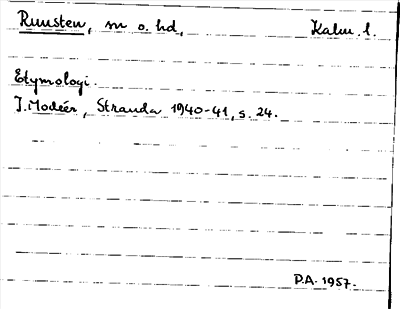 Runsten, sn o. hd, Kalm. l.
Etymologi.
I. Modéer, Stranda 1940-41, s. 24.
P.A. 1957.